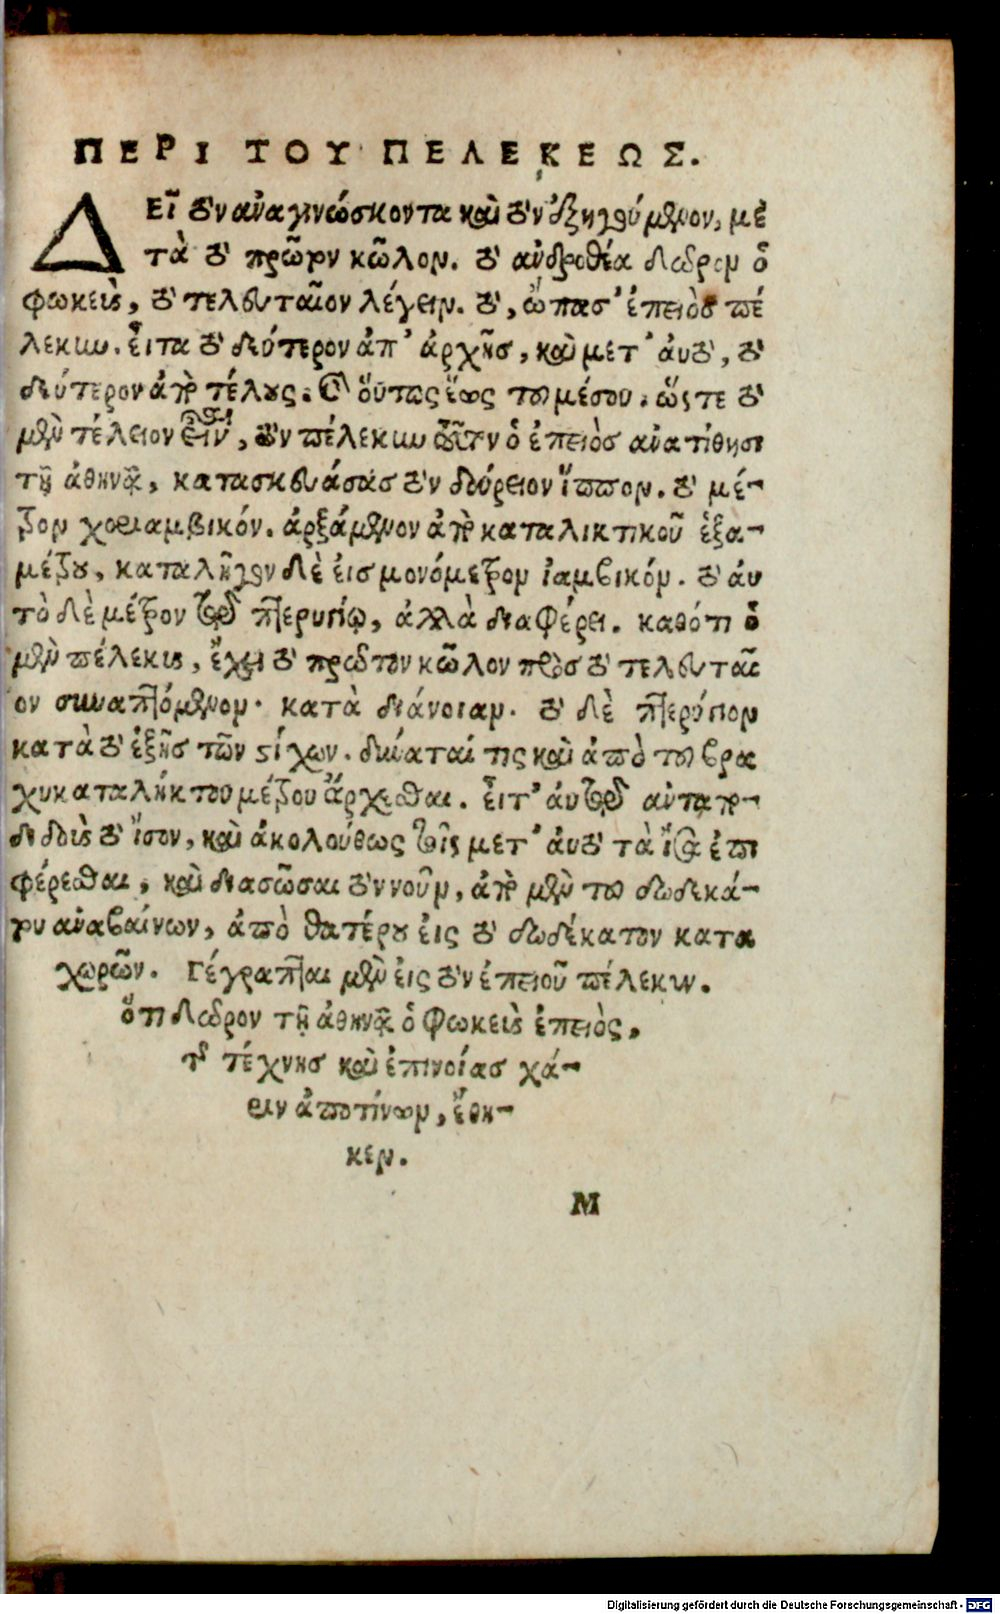 ΠΕΡΙ ΤΟΥ ΠΕΛΕΚΕΩΣ.
ΔΕΙ͂ τὸν ἀναγινώσκοντα καὶ τὸν ἐξηγούμενον, με
τὰ τὸ πρῶτον κῶλον. τὸ ἀνδροθέα δῶρον ὁ
φωκεὺς, τὸ τελευταῖον λέγειν. τὸ, ὤπασ' ἐπειὸσ πέ
λεκυν. εἶτα τὸ δεύτερον ἀπ' ἀρχῆσ, καὶ μετ' ἀυτὸ, τὸ
δεύτερον ἀπὸ τέλους. καὶ οὕτως ἕως τοῦ μέσου. ὥστε τὸ
μὲν τέλειον εἶναι, τὸν πέλεκυν τοῦτον ὁ ἐπειὸσ ἀνατίθησι
τῇ ἀθηνᾷ, κατασκευάσας τὸν δούρειον ἵππον. τὸ μέ-
τρον χοριαμβικόν. ἀρξάμενον ἀπὸ καταλικτικοῦ ἑξα-
μέτρου, καταλῆγον δὲ ἐισ μονόμετρον ἰαμβικόν. τὸ ἀυ
τὸ δὲ μέτρον τῷ πτερυγίῳ, ἀλλὰ διαφέρει. καθότι ὁ
μὲν πέλεκυς, ἔχει τὸ πρῶτον κῶλον πρὸς τὸ τελευταῖ
ον συναπτόμενον· κατὰ διάνοιαν. τὸ δὲ πτερύγιον
κατὰ τὸ ἑξῆσ τῶν στίχων. δύναταί τις καὶ ἀπὸ τοῦ βρα
χυκαταλήκτου μέτρου ἄρχεσθαι. εἶτ' ἀυτῷ ἀνταπο-
διδοὺς τὸ ἴσον, καὶ ἀκολούθως τοῖς μετ' ἀυτὸ τὰ ἴσα ἐπι
φέρεσθαι, καὶ διασῶσαι τὸν νοῦν, ἀπὸ μὲν τοῦ δωδεκά-
του ἀναβαίνων, ἀπὸ θατέρου ἐις τὸ δωδέκατον κατα
χωρῶν. Γέγραπται μὲν ἐις τὸν ἐπειοῦ πέλεκυν.
ὅτι δῶρον τῇ ἀθηνᾷ ὁ φωκεὺς ἐπειὸς,
τῆς τέχνησ καὶ ἐπινοίασ χά-
ριν ἀποτίνων, ἔθη-
κεν.
M
Digitalisierung gefördert durch die Deutsche Forschungsgemeinschaft - DFG